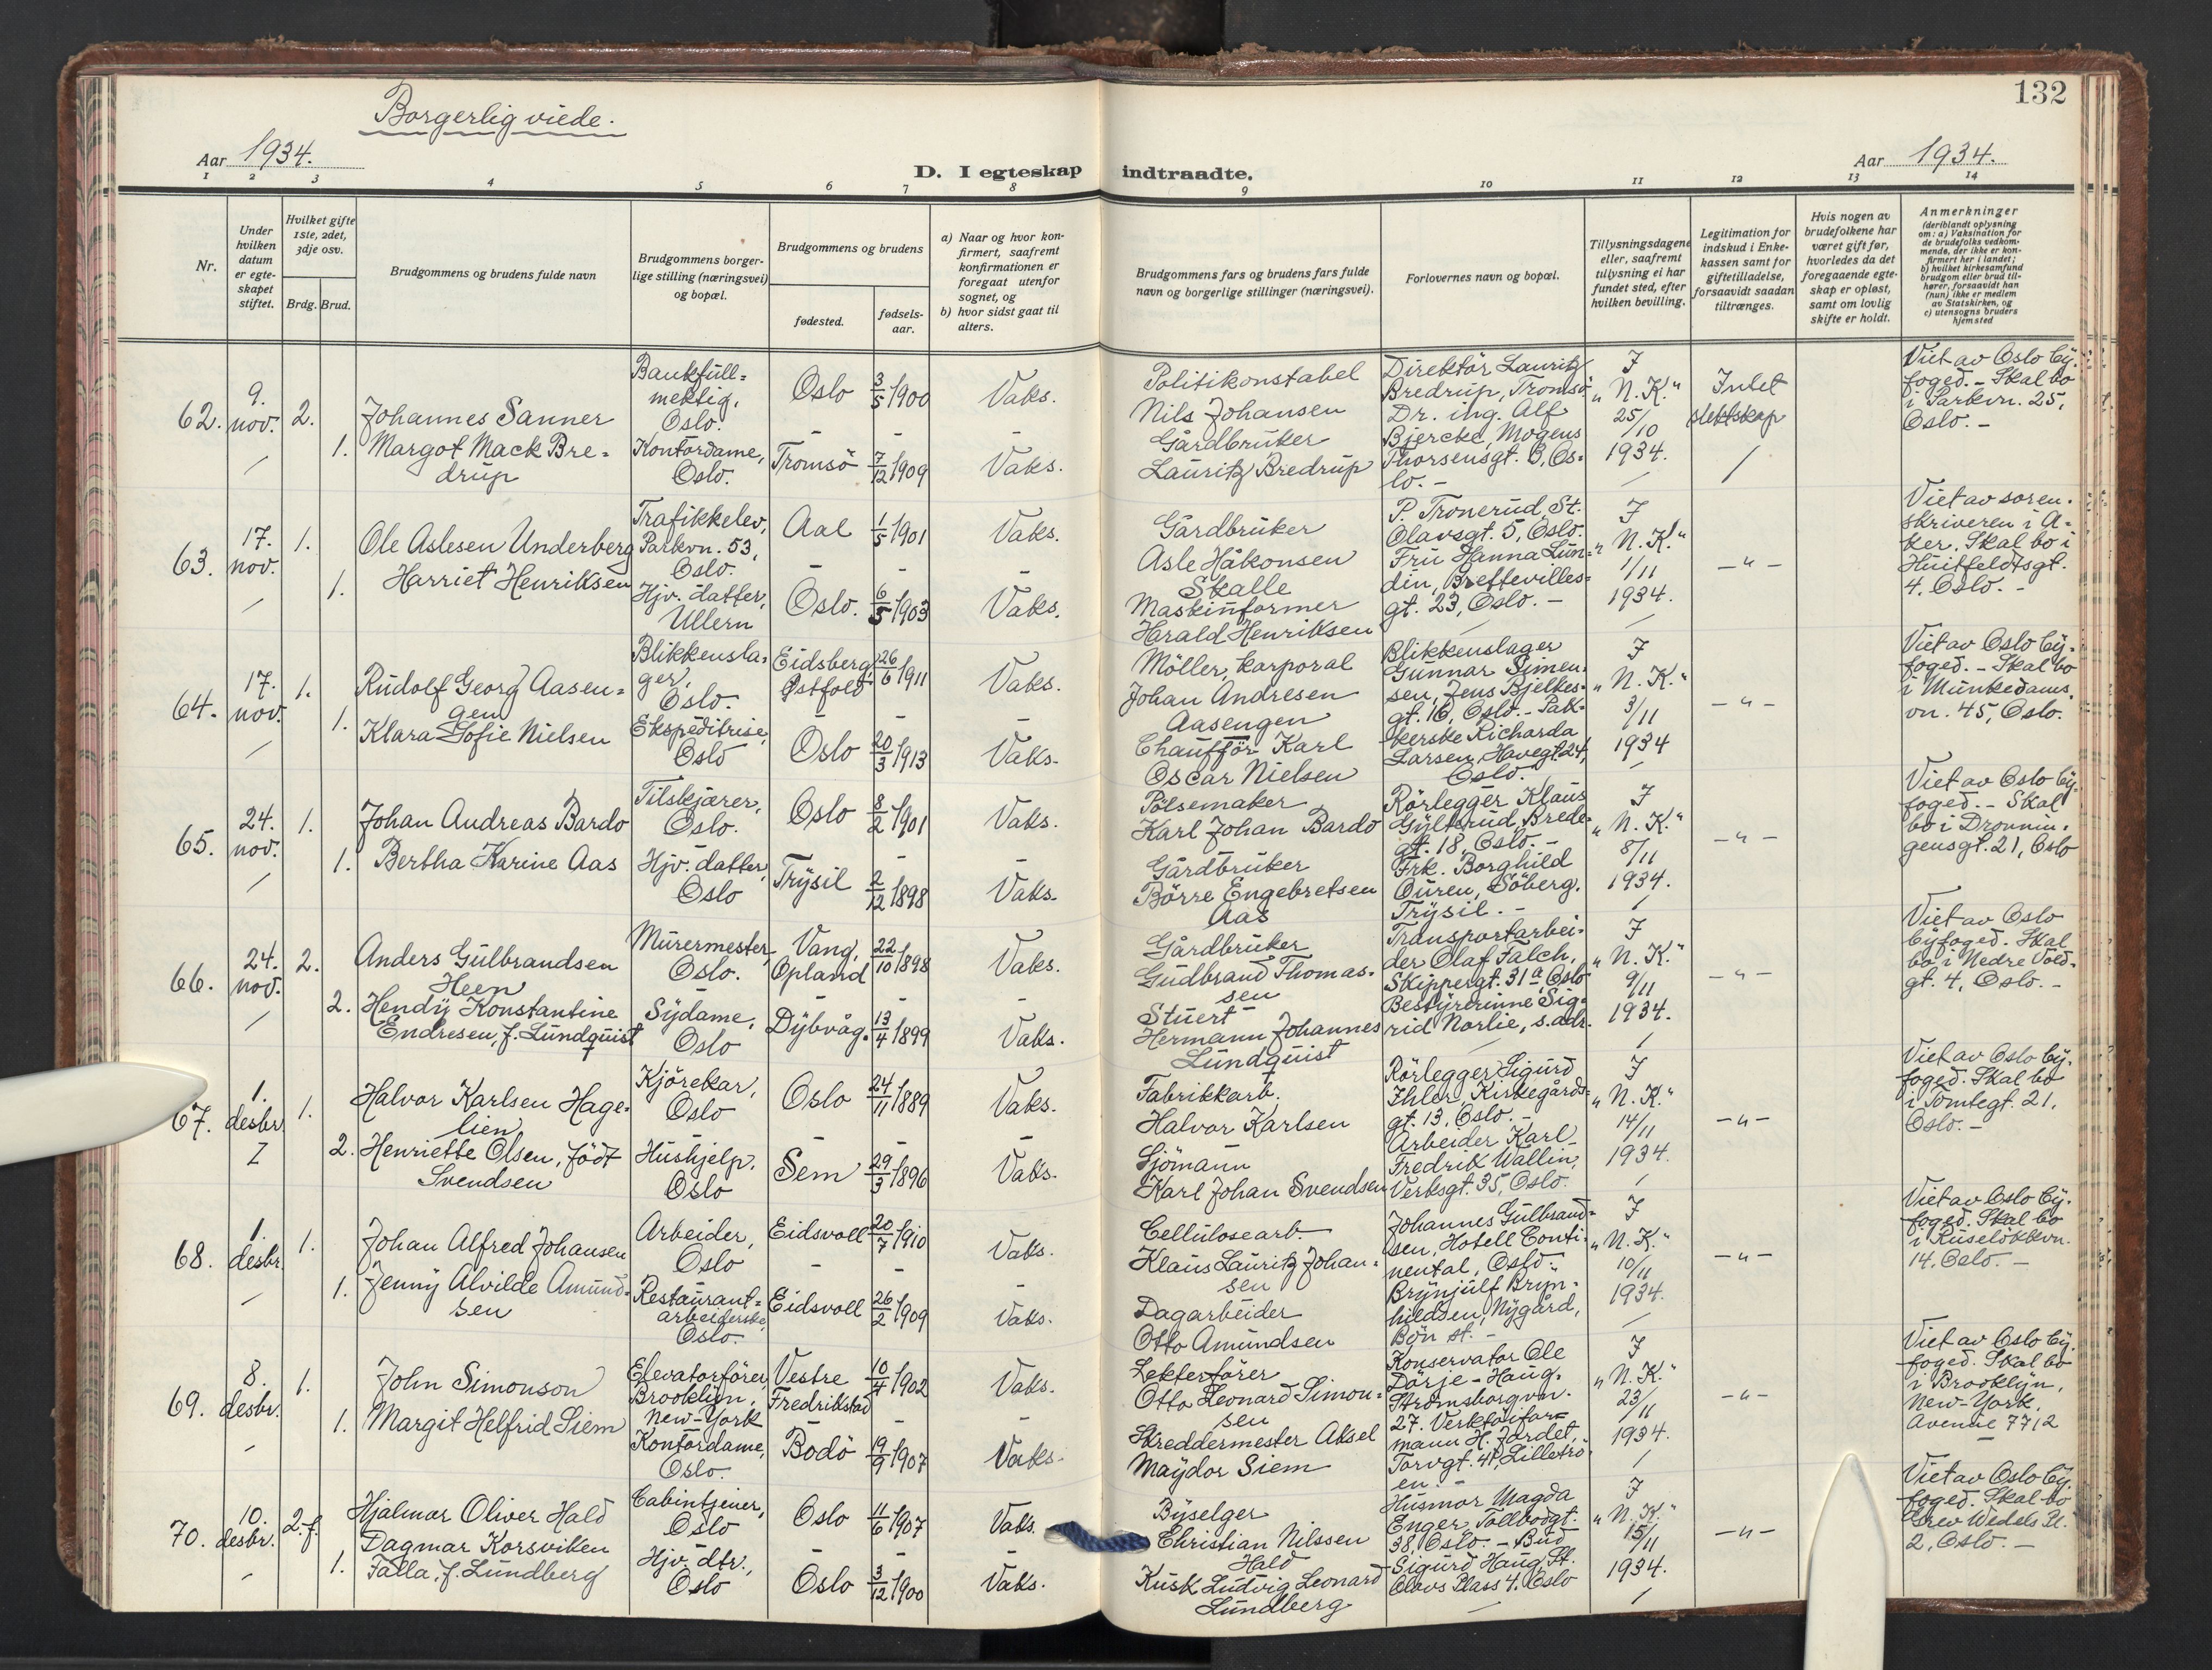 132
Borgerlig viede.
Aar 1934.
Aar 1934.
D. I egteskap indtraadte.
1 2 3 4 5 6 7 8 9 10 11 12 13 14
Nr.
Under
hvilken
datum
er egte-
skapet
stiftet.
Hvilket gifte
1ste, 2det,
3dje osv.
Brdg. Brud.
Brudgommens og brudens fulde navn
Brudgommens borger-
lige stilling (næringsvei)
og bopæl.
Brudgommens og brudens
fødested.
fødsels-
aar.
a) Naar og hvor kon-
firmert, saafremt
konfirmationen er
foregaat utenfor
sognet, og
b) hvor sidst gaat til
alters.
Brudgommens fars og brudens fars fulde
navn og borgerlige stillinger (næringsvei).
Forlovernes navn og bopæl.
Tillysningsdagene
eller, saafremt
tillysning ei har
fundet sted, efter
hvilken bevilling.
Legitimation for
indskud i Enke-
kassen samt for
giftetilladelse,
forsaavidt saadan
tiltrænges.
Hvis nogen av
brudefolkene har
været gift før,
hvorledes da det
foregaaende egte-
skap er opløst,
samt om lovlig
skifte er holdt.
Anmerkninger
(deriblandt oplysning
om: a) Vaksination for
de brudefolks vedkom-
mende, der ikke er kon-
firmert her i landet;
b) hvilket kirkesamfund
brudgom eller brud til-
hører, forsaavidt han
(hun) ikke er medlem
av Statskirken, og
c) utensogns bruders
hjemsted
62.
9.
nov.
2.
Johannes Sanner
1. Margot Mack Bre=
drup
Bankfull=
mektig,
Oslo.
Kontordame,
Oslo.
Oslo 3/5 1900
Tromsö 7/12 1909
Vaks.
Vaks.
Politikonstabel
Nils Johansen
Gårdbruker
Lauritz Bredrup
Direktör Lauritz
Bredrup, Tromsö
Dr. ing. Alf
Bjercke, Mogens
Thorsensgt. 3, Os=
lo. -
I
"N. K."
25/10
1934.
Intet
slektskap
Viet av Oslo by=
foged. - Skal bo
i Parkvn. 25,
Oslo. -
63.
17.
nov.
1.
Ole Aslesen Underberg
1. Harriet Henriksen
Trafikkelev,
Parkvn. 53,
Oslo.
Hjv. datter,
Ullern
Aal 1/5 1901
Oslo. 6/5 1903
Vaks.
Vaks.
Gårdbruker
Asle Håkonsen
Skalle
Maskinformer
Harald Henriksen
P. Tronerud, St.
Olavsgt. 5, Oslo.
Fru Hanna Lun=
din, Breftevilles=
gt. 23, Oslo. -
I
"N. K."
1/11
1934.
- " -
Viet av soren=
skriveren i A=
ker. Skal bo i
Huitfeldtsgt.
4. Oslo. -
64.
17.
nov.
1.
Rudolf Georg Aasen=
gen
1. Klara Sofie Nielsen
Blikkensla=
ger,
Oslo.
Ekspeditrise,
Oslo
Eidsberg,
Østfold 26/6 1911
Oslo 20/3 1913
Vaks.
Vaks.
Möller, karporal
Johan Andresen
Aasengen
Chaufför Karl
Oscar Nielsen
Blikkenslager
Gunnar Simen=
sen, Jens Bjelkes=
gt. 16, Oslo. - Pak=
kerske Richarda
Larsen, Havegt. 24,
Oslo.
I
"N. K."
3/11
1934
- " -
Viet av Oslo by=
foged. - Skal bo
i Munkedams=
vn. 45, Oslo.
65.
24.
nov.
1.
Johan Andreas Bardo
1. Bertha Karine Aas
Tilskjærer,
Oslo.
Hjv. datter,
Oslo
Oslo 8/2 1901
Trysil 2/12 1898
Vaks.
Vaks.
Pölsemaker
Karl Johan Bardo
Gårdbruker
Börre Engebretsen
Aas
Rörlegger Klaus
Gylterud, Brede=
gt. 18, Oslo. -
Frk. Borghild
Ouren, Söberg,
Trysil. -
I
"N. K."
8/11
1934.
- " -
Viet av Oslo by=
foged. - Skal
bo i Dronnin=
gensgt. 21, Oslo
66.
24.
nov.
2.
Anders Gulbrandsen
Heen
2. Hendy Konstantine
Endresen, f. Lundquist
Murermester,
Oslo.
Sydame,
Oslo
Vang,
Opland 22/10 1898
Dybvåg. 13/4 1899
Vaks.
Vaks.
Gårdbruker
Gudbrand Thomas=
sen
Stuert
Hermann Johannes
Lundquist
Transportarbei=
der Olaf Falch,
Skippergt. 31a, Oslo
Bestyrerinne Sig=
rid Norlie, s.adr.
I
"N. K."
9/11
1934.
- " -
Viet av Oslo
byfoged. Skal
bo i Nedre Vold=
gt. 4, Oslo. -
67.
1.
desbr.
1.
Halvor Karlsen Hage=
lien
2. Henriette Olsen, födt
Svendsen
Kjörekar,
Oslo
Hushjelp,
Oslo
Oslo 24/11 1889
Sem 29/3 1896
Vaks.
Vaks.
Fabrikkarb.
Halvor Karlsen
Sjömann
Karl Johan Svendsen
Rörlegger Sigurd
Ihler, Kirkegårds=
gt. 13, Oslo. -
Arbeider Karl
Fredrik Wallin,
Verksgt. 35, Oslo.
I
"N. K."
14/11
1934.
- " -
Viet av Oslo by=
foged. Skal bo
i Tomtegt. 21,
Oslo. -
68.
1.
desbr.
1.
Johan Alfred Johansen
1. Jenny Alvilde Amund=
sen
Arbeider,
Oslo
Restaurant=
arbeiderske,
Oslo.
Eidsvoll 20/7 1910
Eidsvoll 26/2 1909
Vaks.
Vaks.
Cellulosearb.
Klaus Lauritz Johan=
sen
Dagarbeider
Otto Amundsen
Johannes Gulbrand=
sen, Hotell Conti=
nental, Oslo.
Brynjulf Bryn=
hildsen, Nygård,
Bön st. -
I
"N. K."
10/11
1934.
- " -
Viet av Oslo by=
foged. Skal bo
i Ruselökkvn.
14, Oslo. -
69.
8.
desbr.
1.
John Simonson
1. Margit Helfrid Siem
Elevatorförer,
Brooklyn,
New-York
Kontordame,
Oslo.
Vestre
Fredrikstad 10/4 1902
Bodö 19/9 1907
Vaks.
Vaks.
Lekterförer
Otto Leonard Simon=
sen
Skreddermester Aksel
Maydor Siem
Konservator Ole
Dörje-Haug,
Strömsborgvn.
27. Verktöifor=
mann H. Jordet,
Torvgt. 41, Lilletrö
en. -
I
"N. K."
23/11
1934.
- " -
Viet av Oslo by=
foged. Skal bo
i Brooklyn,
New-York,
Avenue 7712
70.
10.
desbr.
2. f.
Hjalmar Oliver Hald
Dagmar Korsviken
1. Falla, f. Lundberg
Cabintjener,
Oslo
Hjv. dtr.,
Oslo
Oslo 11/6 1907
Oslo 3/12 1900
Vaks.
Vaks.
Byselger
Christian Nilssen
Hald
Kusk Ludvig Leonard
Lundberg
Husmor Magda
Enger, Tollbodgt.
38, Oslo. - Bud
Sigurd Haug, St.
Olavs Plass 4, Oslo
I
"N. K."
15/11
1934.
- " -
Viet av Oslo by=
foged. Skal bo
Grev Wedels Pl.
2, Oslo. -